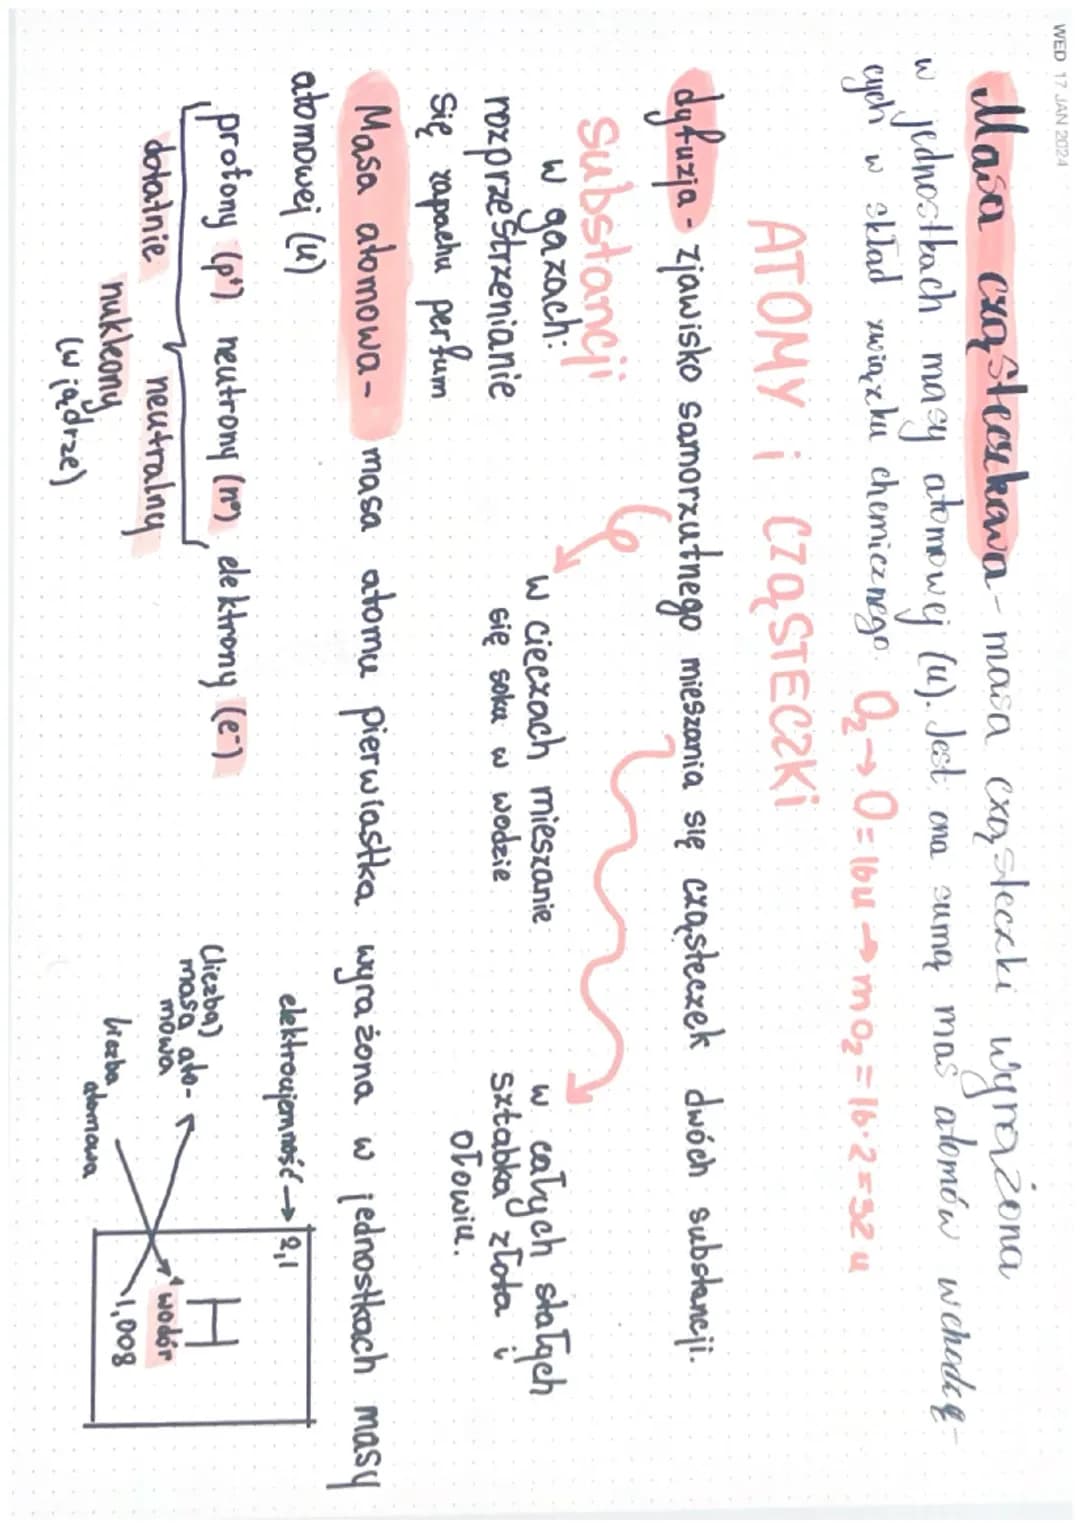 WED 17 JAN 2024
Masa cząsteczkowa - masa cząsteczki wyrażona
w jednostkach masy atomowej (u). Jest ona sumą mas atomów wchodzą-
cych w skład związku chemicznego. O₂→O=16u→mo₂=16·2=32u
ATOMY i CZĄSTECZKI
dyfuzja - zjawisko samorzutnego mieszania się cząsteczek dwóch substancji.
substancji
w gazach:
rozprzestrzenianie
się zapachu perfum
w cieczach mieszanie
się soku w wodzie
w całych stałych
sztabka złota i
ołowiu.
Masa atomowa - masa atomu pierwiastka wyrażona w jednostkach masy
atomowej (u)
protony (p⁺) neutrony (n⁰) elektrony (e⁻)
dotatnie neutralny
nukleony
(w jądrze)
elektroujemność → 2,1
H
(liczba)
masa ato-
mowa
¹ wodór
liczba
atomowa
1,008